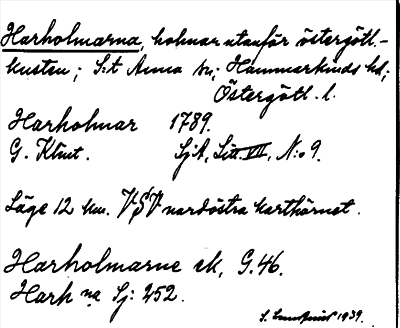 Harholmarna, holmar utanför östergötl.-
kusten; S:t Anna sn; Hammarkinds hd;
Östergötl. l.
Harholmar 1789.
G. Klint. SjA, Litt. VII, N:o 9.
Läge 12 km. VSV nordöstra karthörnet.
Harholmarne ek, G.46.
Harh na Sj: 252.
S. 1939.